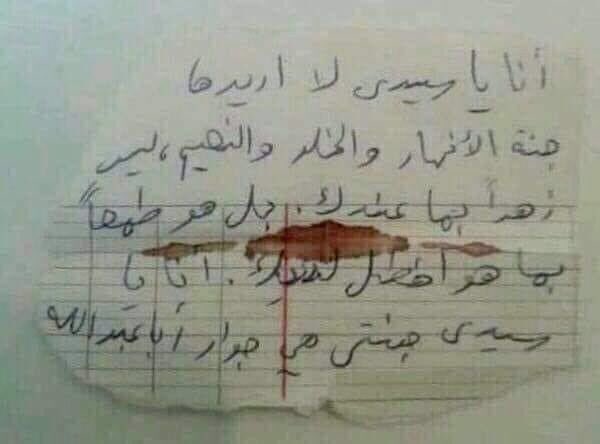 أنا يا سيدي لا اريدها
جنة الأنهار والخلد والنعيم، ليس
زهداً بما عندك. بل هو طمعاً
بما هو افضل لديك. انا يا
سيدي جنتي هي جوار أبا عبد الله